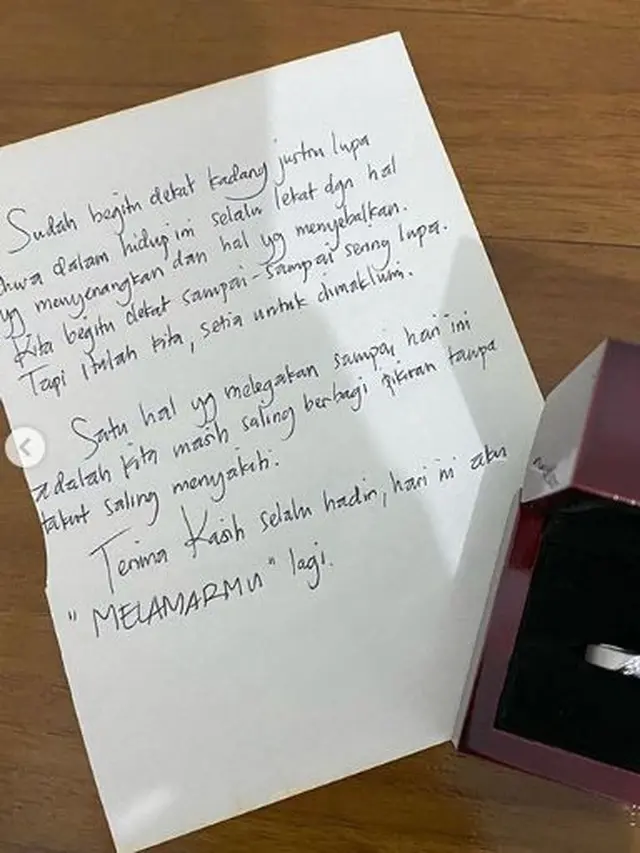 Sudah begitu dekat kadang justru lupa
ahwa dalam hidup ini selalu lekat dgn hal
yg menyenangkan dan hal yg menyebalkan.
Kita begitu dekat sampai-sampai sering lupa.
Tapi itulah kita, setia untuk dimaklumi.
Satu hal yg melegakan sampai hari ini
adalah kita masih saling berbagi pikiran tanpa
takut saling menyakiti.
Terima Kasih selalu hadir, hari ini aku
"MELAMARMU" lagi.